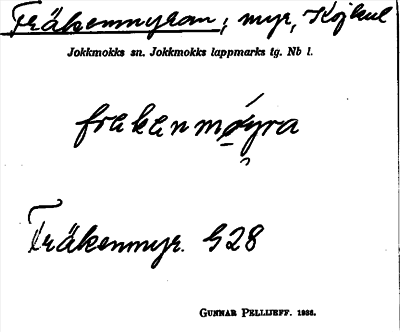 Fräkenmyran, myr, Kojkul
Jokkmokks sn. Jokkmokks lappmarks tg. Nb l.
frakanmøyra
Fräkenmyr. G28
GUNNAR PELLIJEFF. 1936.